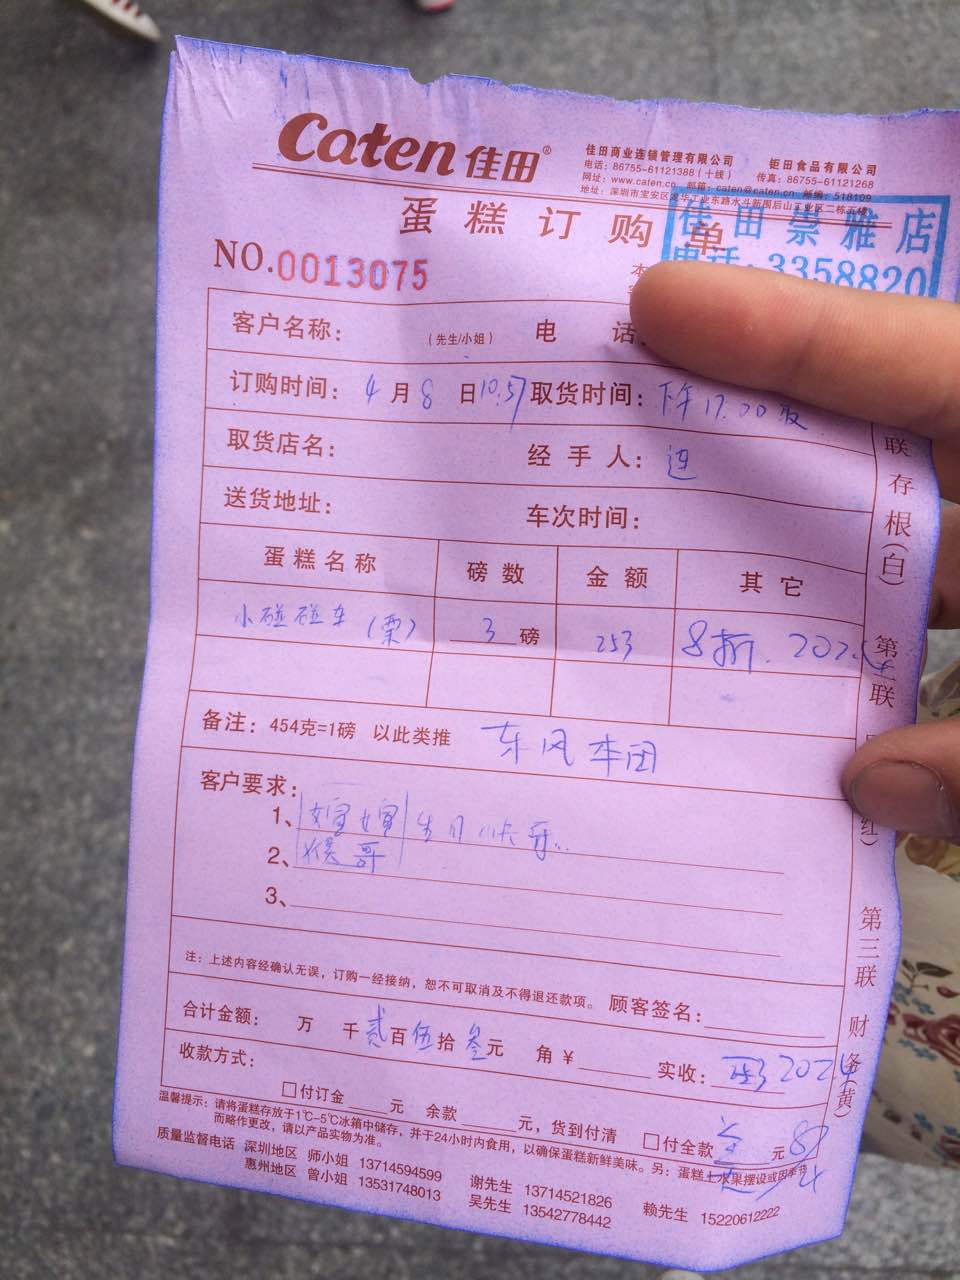 Caten佳田®
佳田商业连锁管理有限公司 钜田食品有限公司
电话：86755-61121388（十线） 传真：86755-61121268
网址：www.caten.cn 邮箱：caten@caten.cn 邮编：518109
地址：深圳市宝安区龙华工业东路水斗新围后山工业区二栋五楼
蛋糕订购单
佳田崇雅店
电话：3358820
NO.0013075
客户名称： （先生/小姐） 电 话：
订购时间：4月8日10:57 取货时间：下午17.00取
取货店名： 经手人：连
送货地址： 车次时间：
蛋糕名称 磅数 金额 其它
小碰碰车（栗） 3磅 253 8折. 202.4
备注：454克=1磅 以此类推 东风本田
客户要求：
1、嫜嫜 生日快乐
2、猴哥
3、
注：上述内容经确认无误，订购一经接纳，恕不可取消及不得退还款项。 顾客签名：
合计金额： 万 千贰百伍拾叁元 角¥ 实收：253 202.4
收款方式： □付订金 元 余款 元，货到付清 □付全款 元
温馨提示：请将蛋糕存放于1℃-5℃冰箱中储存，并于24小时内食用，以确保蛋糕新鲜美味。另：蛋糕上水果摆设或因季节
而略作更改，请以产品实物为准。
质量监督电话 深圳地区 师小姐 13714594599 谢先生 13714521826 赖先生 15220612222
惠州地区 曾小姐 13531748013 吴先生 13542778442
联存根（白）
第二联
红）
第三联 财务（黄）